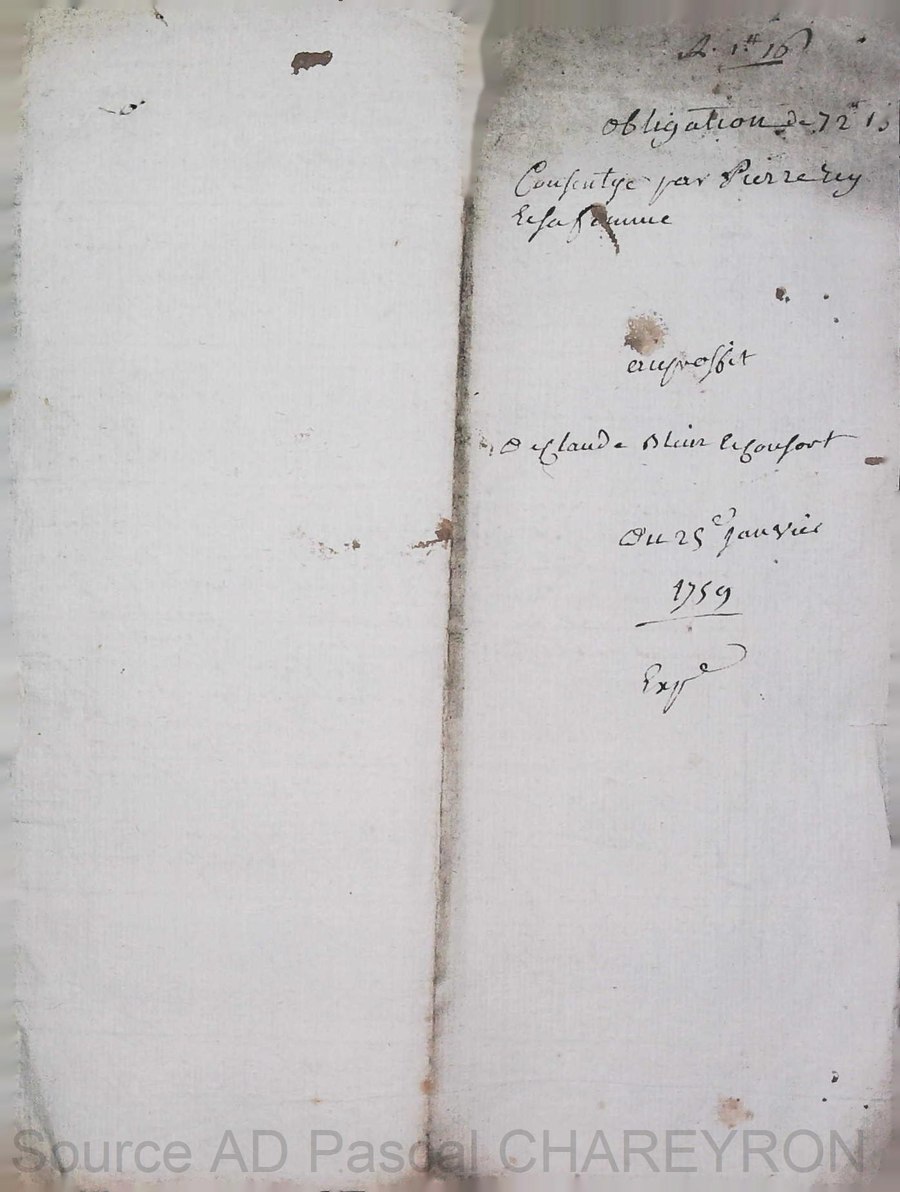 R. 1# 16
obligation de 72# 15
Consentye par Pierre rey
Et sa femme
au proffit
De Claude Blein Consort
Du 25e Janvier
1759
Expe
Source AD Pascal CHAREYRON